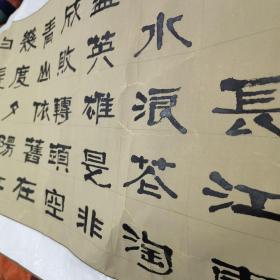 長江東
水浪花淘
盡英雄是非
成敗轉頭空
青山依舊在
幾度夕陽
白